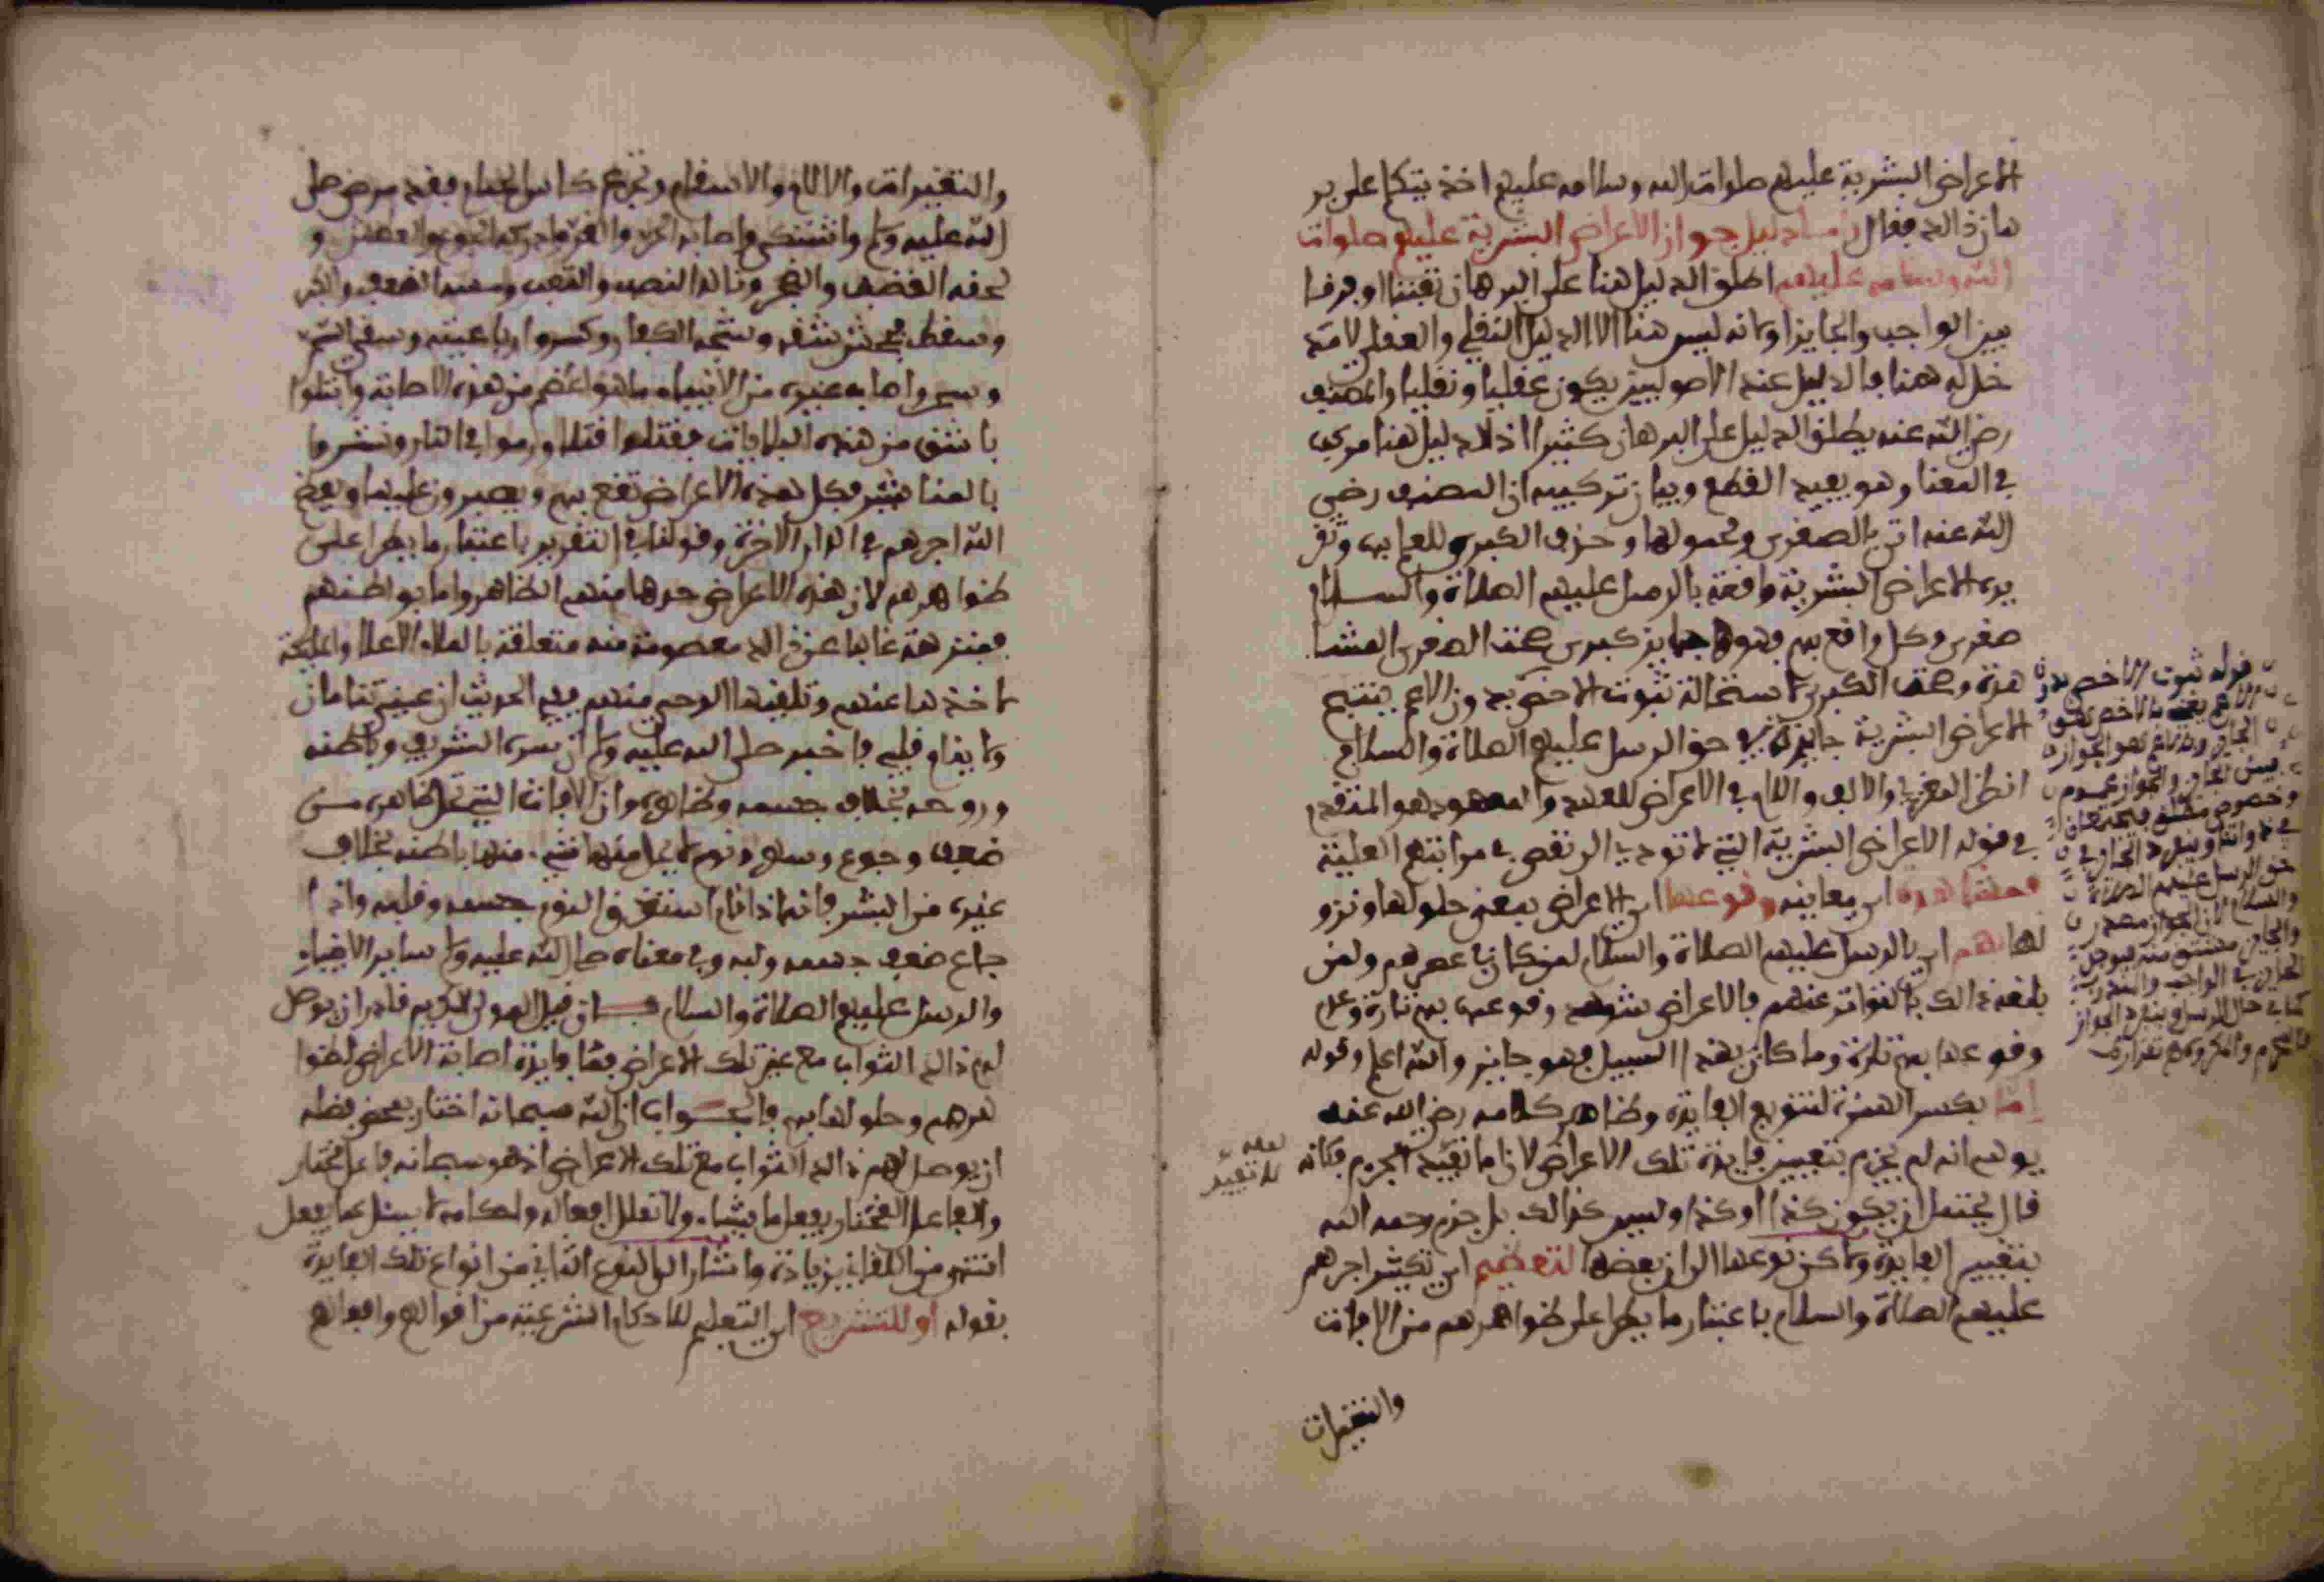 الاعراض البشرية عليهم صلوات الله وسلامه عليهم اخذ يتكلم على بر
هان ذالك فقال واما دليل جواز الاعراض البشرية عليهم صلوات
الله وسلامه عليهم اطلق الدليل هنا على البرهان تفننا او فرقا
بين الواجب والجايز او لانه ليس هنا الا الدليل النقلي والعقلي لا مد
خل له هنا والدليل عند الاصوليين يكون عقليا ونقليا والمصنف
رضي الله عنه يطلق الدليل على البرهان كثيرا اذ الدليل هنا مركب
في المعنا وهو يفيد القطع وبيان تركيبه ان المصنف رضي
الله عنه اتى بالصغرى ومحمولها وحذف الكبرى للعلم بها وتقر
يره الاعراض البشرية واقعة بالرسل عليهم الصلاة والسلام
صغرى وكل واقع بهم فهو جايز كبرى صحت الصغرى المشا
هدة وصحت الكبرى لاستحالة ثبوت الاخص بدون الاعم ينتج
الاعراض البشرية جايزة في حق الرسل عليهم الصلاة والسلام
انظر المغربي والالف واللام في الاعراض للعهد والمعهود هو المتقدم
في قوله الاعراض البشرية التي لا تودي الى نقص في مراتبهم العلية
فمشاهدة اي معاينة وقوعها اي الاعراض بمعنى حلولها ونزو
لها بهم اي بالرسل عليهم الصلاة والسلام لمن كان في عصرهم ولمن
بلغه ذالك بالتواتر عنهم فالاعراض شوهد وقوعها بهم تارة وعدم
وقوعها بهم تارة وما كان بهذا السبيل فهو جايز والله اعلم وقوله
اما بكسر الهمزة لتنويع الفايدة وظاهر كلامه رضي الله عنه
يوهم انه لم يجزم بتعيين فايدة تلك الاعراض لان اما تفيد الجزم فكانه
قال يحتمل ان يكون كذا او كذا وليس كذالك بل جزم رحمه الله
بتعيين الفايدة ولاكن نوعها الى ان بعضها لتعظيم اي تكثير اجرهم
عليهم الصلاة والسلام باعتبار ما يطرا على ظواهرهم من الافات
والتغيرات
قوله ثبوت الاخص بدون
الاعم
وخصوص مطلق فيجتمعان
حق الرسل عليهم الصلاة
والسلام لان الجواز مصدر
والجايز مشتق منه
لعله
لا تفيد
والتغيرات والالام والاسقام وتجرع كاس الحمام فقد مرض صلى
الله عليه وسلم واشتكى واصابه الحر والقر وادركه الجوع والعطش و
لحقه الغضب والضجر وناله النصب والتعب ومسه الضعف والكبر
وسقط فجحش شقه وشجه الكفار وكسروا رباعيته وسقي السم
وسحر واصاب غيره من الانبياء ما هو اعظم من هذه الاصابة وابتلوا
باشق من هذه البلايات فقتلوا قتلا ورموا في النار ونشروا
بالمناشر فكل هذه الاعراض تقع بهم ويصبرون عليها ويعظم
الله اجرهم في الدار الاخرة وقولنا في التقرير باعتبار ما يطرا على
ظواهرهم لان هذه الاعراض حدها منهم الظاهر واما بواطنهم
فمنزهة غالبا عن ذالك معصومة منه متعلقة بالملا الاعلا والمليكة
لاخذها عنهم وتلقيها الوحي منهم ففي الحديث ان عيني تنامان
ولا ينام قلبي فاخبر صلى الله عليه وسلم ان سره الشريف وباطنه
وروحه بخلاف جسمه وظاهره وان الافات التي تحل ظاهره من
ضعف وجوع وسهر ونوم لا يحل منها شيء منها باطنه بخلاف
غيره من البشر فانه اذا نام استغرق النوم جسمه وقلبه واذا
جاع ضعف جسمه ولبه وفي معناه صلى الله عليه وسلم ساير الانبياء
والرسل عليهم الصلاة والسلام فان قيل المولى الكريم قادر ان يوصل
لهم ذالك الثواب مع غير تلك الاعراض فما فايدة اصابة الاعراض لظوا
هرهم وحلولها بهم فالجواب ان الله سبحانه اختار بمحض فضله
ان يوصل لهم ذالك الثواب مع تلك الاعراض اذ هو سبحانه فاعل مختار
والفاعل المختار يفعل ما يشاء ولا تعلل افعاله واحكامه لا يسئل عما يفعل
انتهى من اللقاني بزيادة واشار الى النوع الثاني من انواع تلك الفايدة
بقوله او للتشريع اي التعليم للاحكام الشرعية من اقوالهم وافعالهم